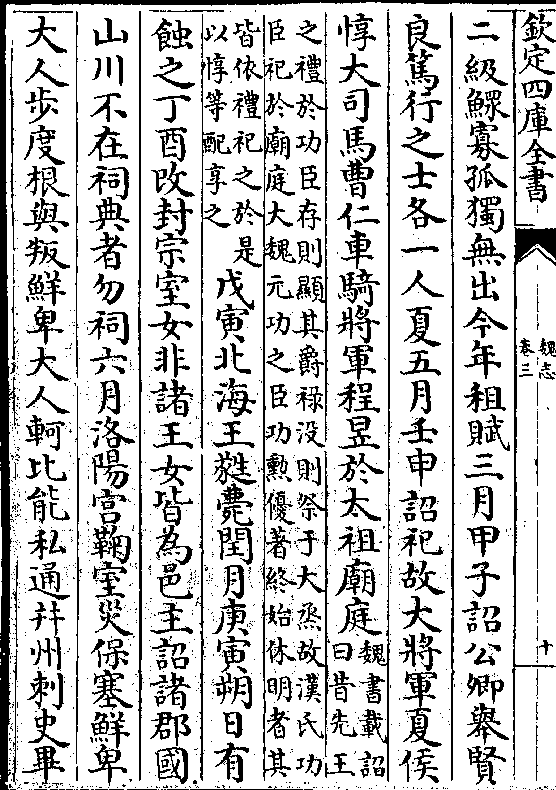 欽定四庫全書
魏志
卷三
十
二級鰥寡孤獨無出今年租賦三月甲子詔公卿舉賢
良篤行之士各一人夏五月壬申詔祀故大將軍夏侯
惇大司馬曹仁車騎將軍程昱於太祖廟庭
魏書載詔
曰昔先王
之禮於功臣存則顯其爵祿没則祭于大烝故漢氏功
臣祀於廟庭大魏元功之臣功勲優著終始休明者其
皆依禮祀之於是
以惇等配享之
戊寅北海王蕤薨閏月庚寅朔日有
蝕之丁酉改封宗室女非諸王女皆為邑主詔諸郡國
山川不在祠典者勿祠六月洛陽宫鞠室災保塞鮮卑
大人步度根與叛鮮卑大人軻比能私通并州刺史畢